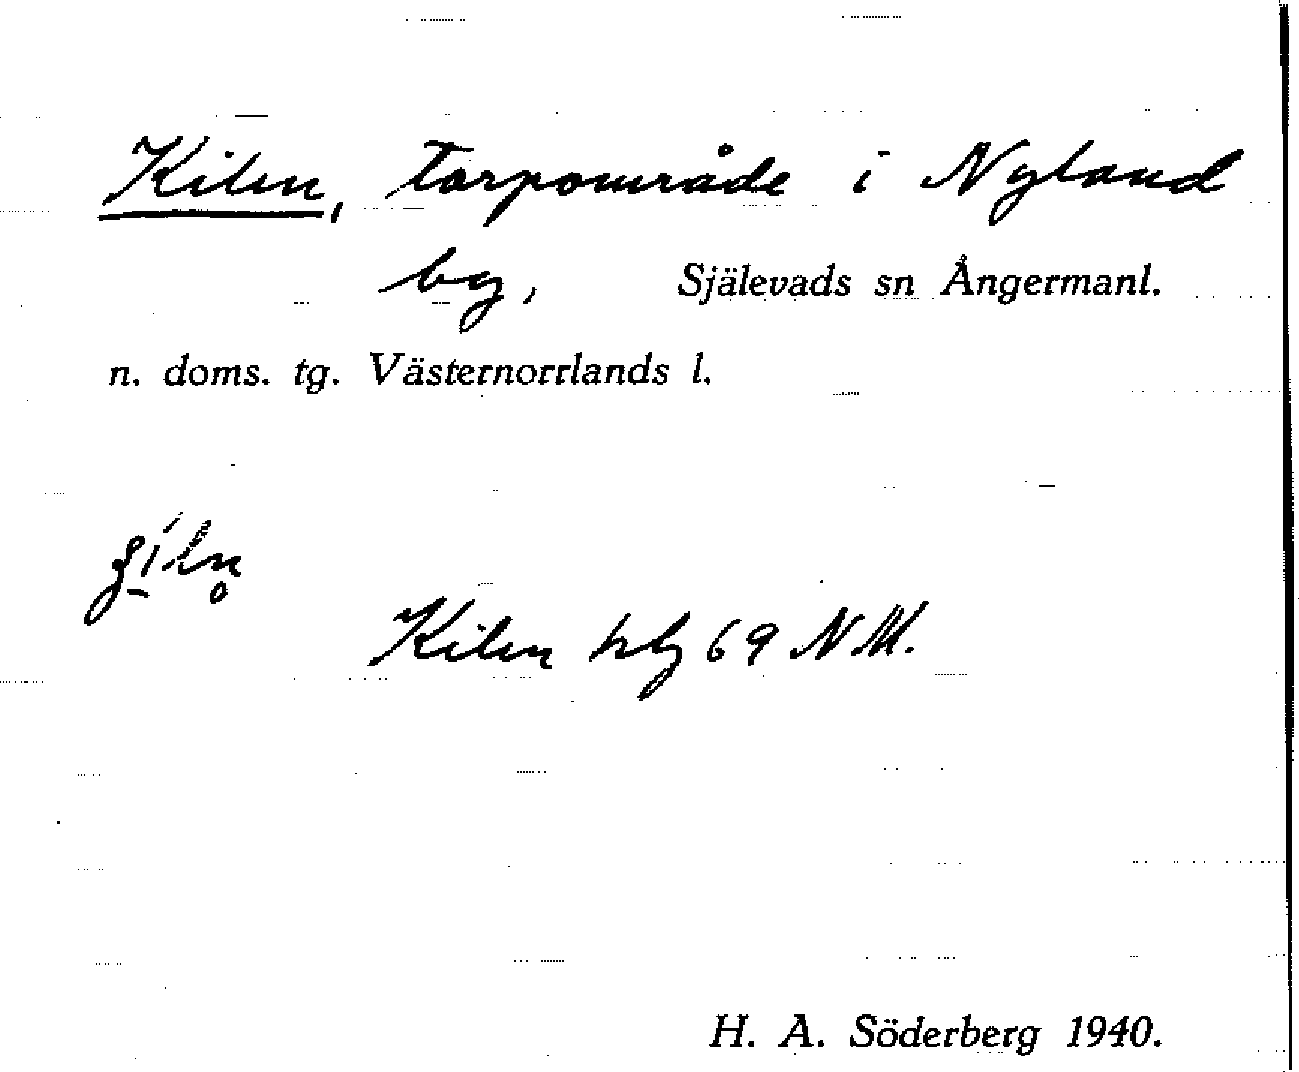 Kilen, torpområde i Nyland
by, Själevads sn Ångermanl.
n. doms. tg. Västernorrlands l.
Kilen hbg 69 NM.
H. A. Söderberg 1940.